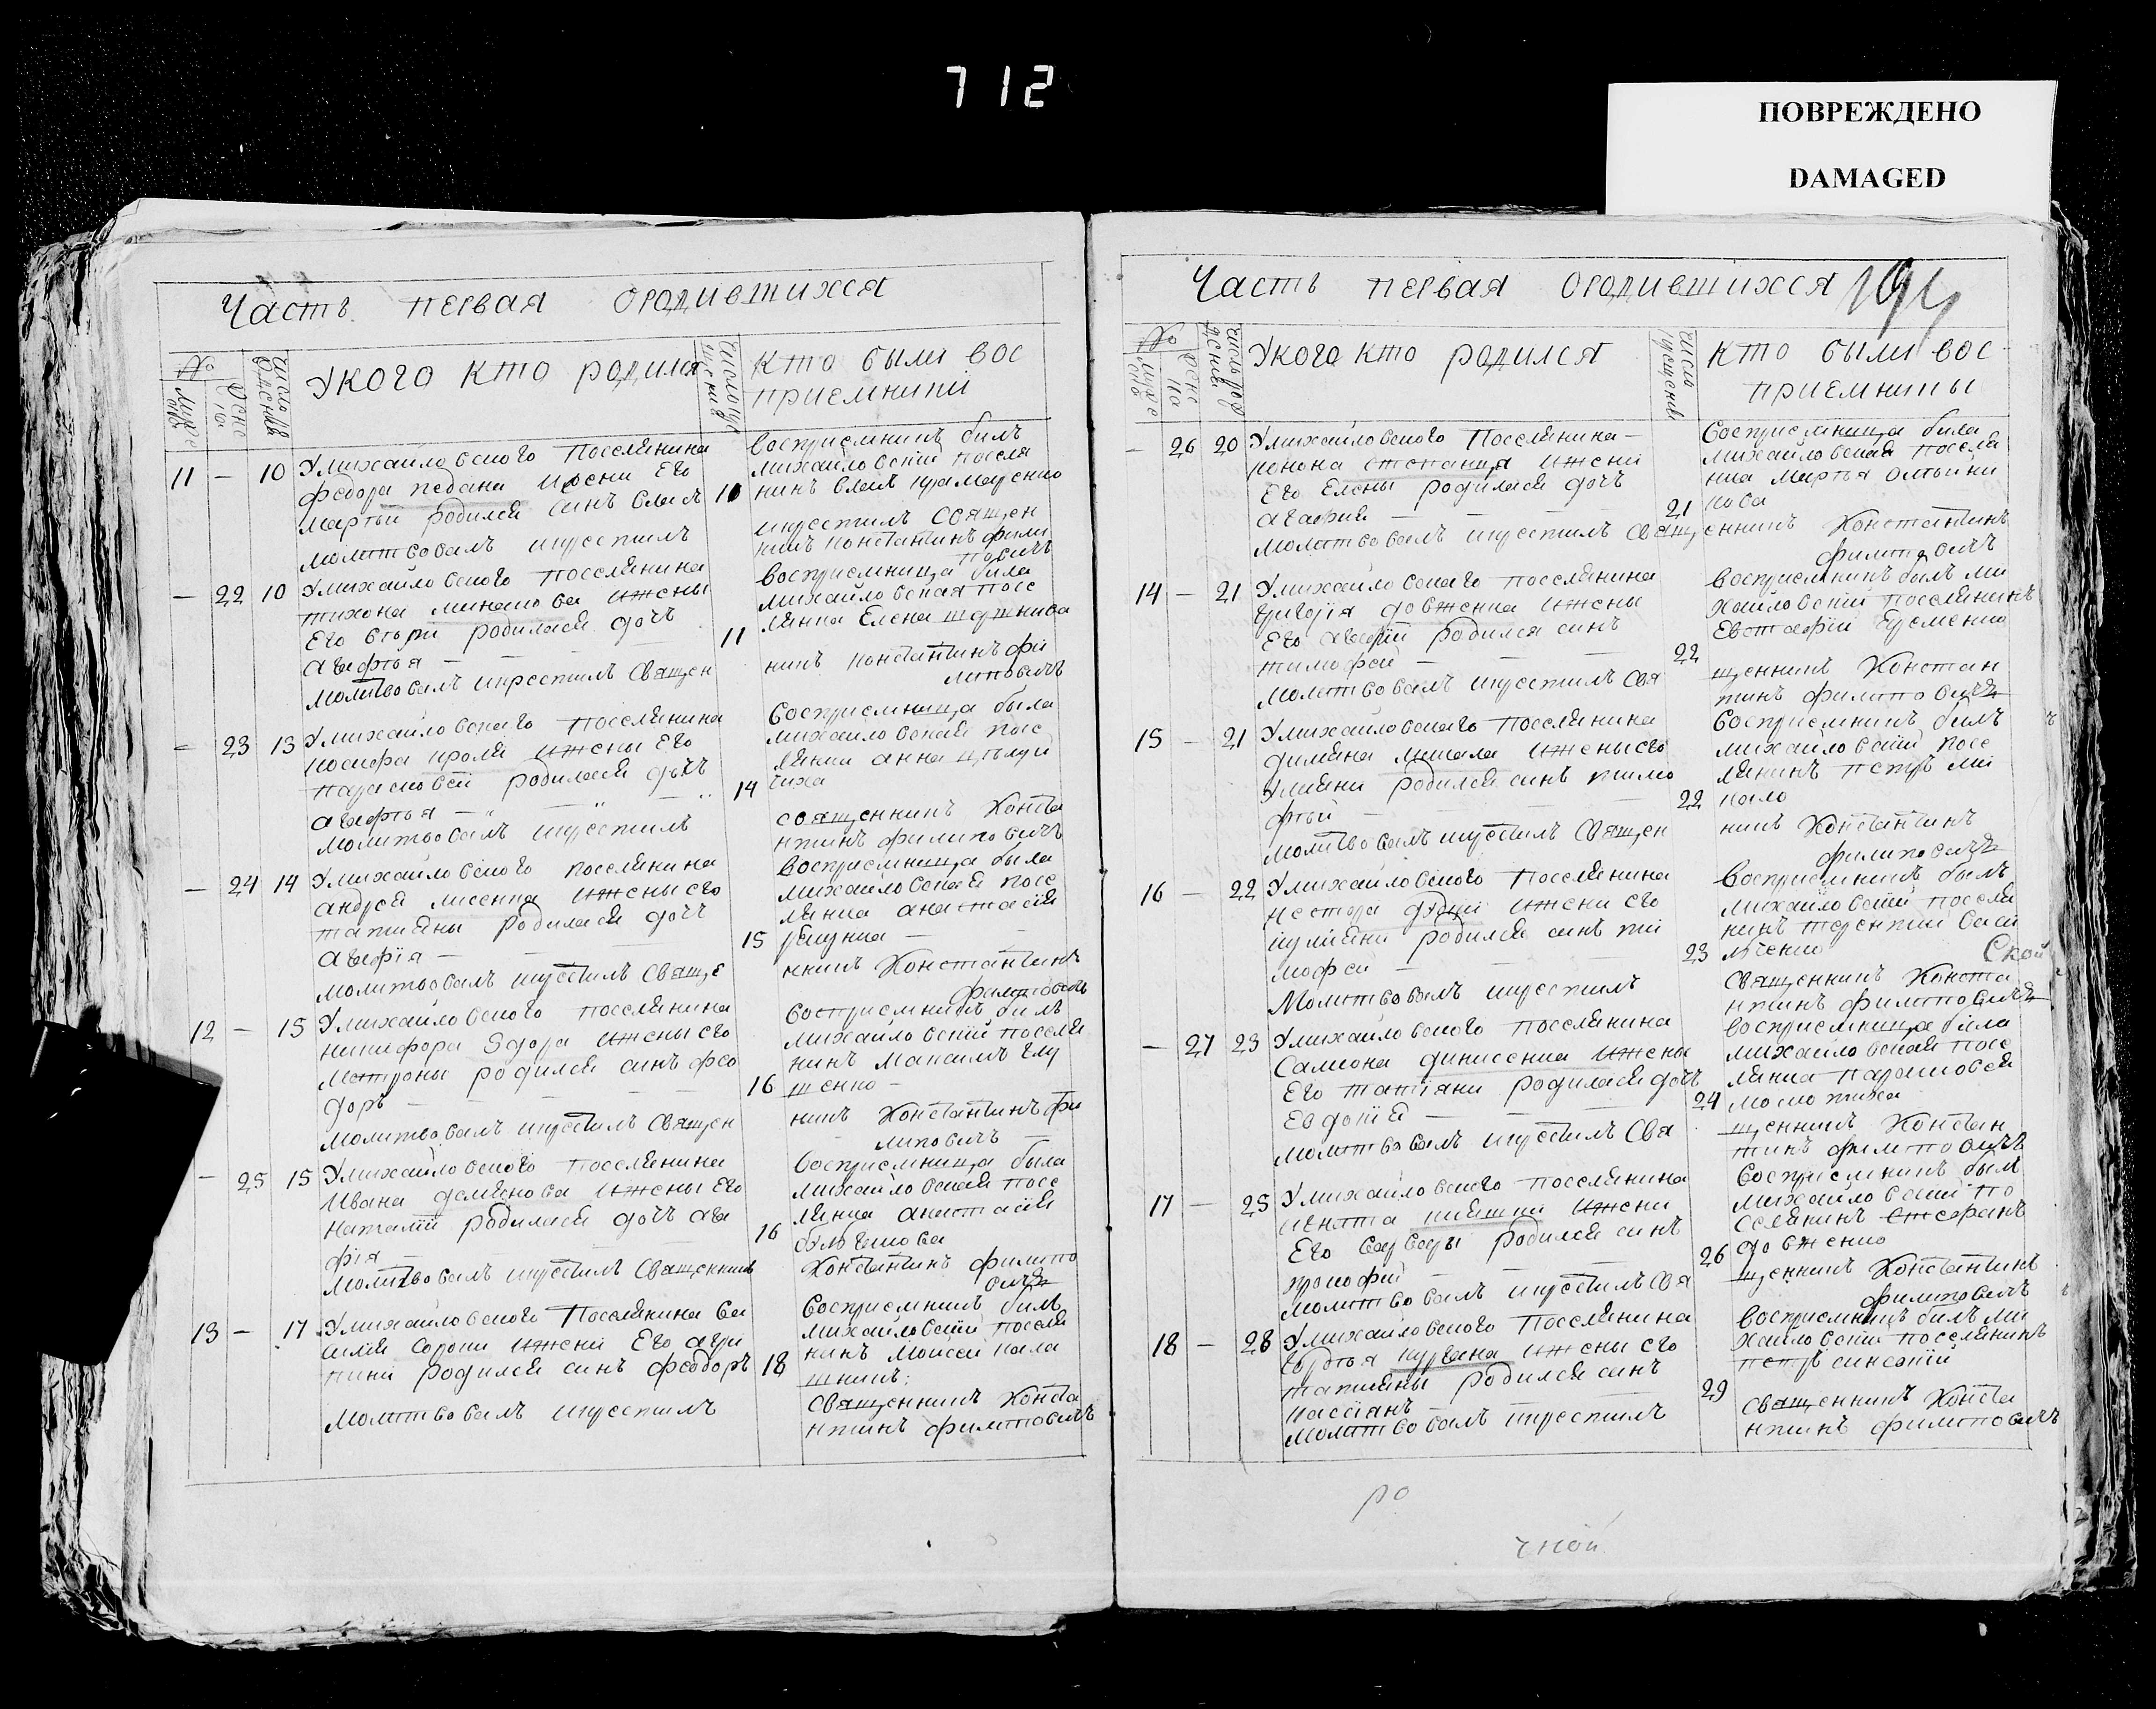 712
ПОВРЕЖДЕНО
DAMAGED
Часть первая ородившихся
№
мужс
женс
Укого кто родился
кто были вос
приемники
11 — 10 Умихайловского Поселянина
федора педани ижени Его
марьти родился синъ влас 10
молитвовалъ икрестилъ
восприемникъ билъ
михайловский поселя
нинъ власъ крамаренко
икрестилъ священ
никъ константинъ фили
повичъ
— 22 10 Умихайловского поселянина
тихона минакова ижены
Его родилася дочъ
агафья — — 11
молитвовалъ икрестилъ священ
восприемница била
михайловская посе
лянка Елена
никъ константинъ фи
липовичъ
— 23 13 Умихайловского поселянина
иосифа кроля ижены Его
парасковей родилася дочъ
агафья — 14
молитвовалъ икрестилъ
восприемница была
михайловская посе
лянка анна
чиха
священникъ Конста
нтинъ филиповичъ
— 24 14 Умихайловского поселянина
андрея лисенка ижены его
татияны родилася дочъ
агафия — 15
молитвовалъ икрестилъ свяще
восприемница была
михайловская посе
лянка анастасия
нникъ Константинъ
филиповичъ
12 — 15 Умихайловского поселянина
никифора Здора ижены его
мотроны родился синъ фео
доръ — 16
молитвовалъ икрестилъ священ
восприемникъ билъ
михайловский поселя
нинъ максимъ глу
щенко —
никъ Константинъ фи
липовичъ —
— 25 15 Умихайловского поселянина
Ивана демянова ижены Его
наталии родилася дочъ ага
фия — 16
молитвовалъ икрестилъ священникъ
восприемница была
михайловская посе
лянка анастасия
Константинъ филипо
вичъ
13 — 17 Умихайловского Поселянина ва
силия сороки ижени Его агри
пини родился синъ феодоръ 18
молитвовалъ икрестилъ
восприемникъ билъ
михайловский поселя
нинъ моисей кала
шникъ:
священникъ конста
нтинъ филиповичъ
Часть первая ородившихся 194
№
мужс
женс
Укого кто родился
кто были вос
приемники
— 26 20 Умихайловского Поселянина —
конона степанця ижени
Его Елены родилася дочъ
агафия — 21
молитвовалъ икрестилъ священникъ Константинъ
филиповичъ
восприемница била
михайловская поселя
нка марья
кова
14 — 21 Умихайловского поселянина
григория довженка ижены
Его агафии родился синъ
тимофей — 22
молитвовалъ икрестилъ свя
восприемникъ былъ ми
хайловский поселянинъ
Евстафий Еременко
щенникъ Констан
тинъ филиповичъ
15 — 21 Умихайловского поселянина
димяна ижены его
улияни родился синъ тимо
фей — 22
молитвовалъ икрестилъ священ
восприемникъ билъ
михайловский посе
лянинъ петръ ми
кало
никъ Константинъ
филиповичъ
16 — 22 Умихайловского поселянина
нестора ижени его
иулияни родился синъ ти
мофей — 23
молитвовалъ икрестилъ
восприемникъ былъ
михайловский поселя
нинъ терентий васи
льченко
Ской
священникъ Конста
нтинъ филиповичъ
— 27 23 Умихайловского поселянина
Самсона динисенка ижены
Его татияни родилася дочъ
Евдокия — 24
молитвовалъ икрестилъ свя
восприемница била
михайловская посе
лянка парасковея
щенникъ Констан
тинъ филиповичъ
17 — 25 Умихайловского поселянина
ижени
Его варвары родился синъ
трофий — 26
молитвовалъ икрестилъ свя
восприемникъ былъ
михайловский по
селянинъ стефанъ
довженко
щенникъ Константинъ
филиповичъ
18 — 28 Умихайловского Поселянина
ижены его
татияны родился синъ
касиянъ 29
молитвовалъ икрестилъ
восприемникъ билъ ми
хайловский поселянинъ
петръ
священникъ конста
нтинъ филиповичъ
ро
чной